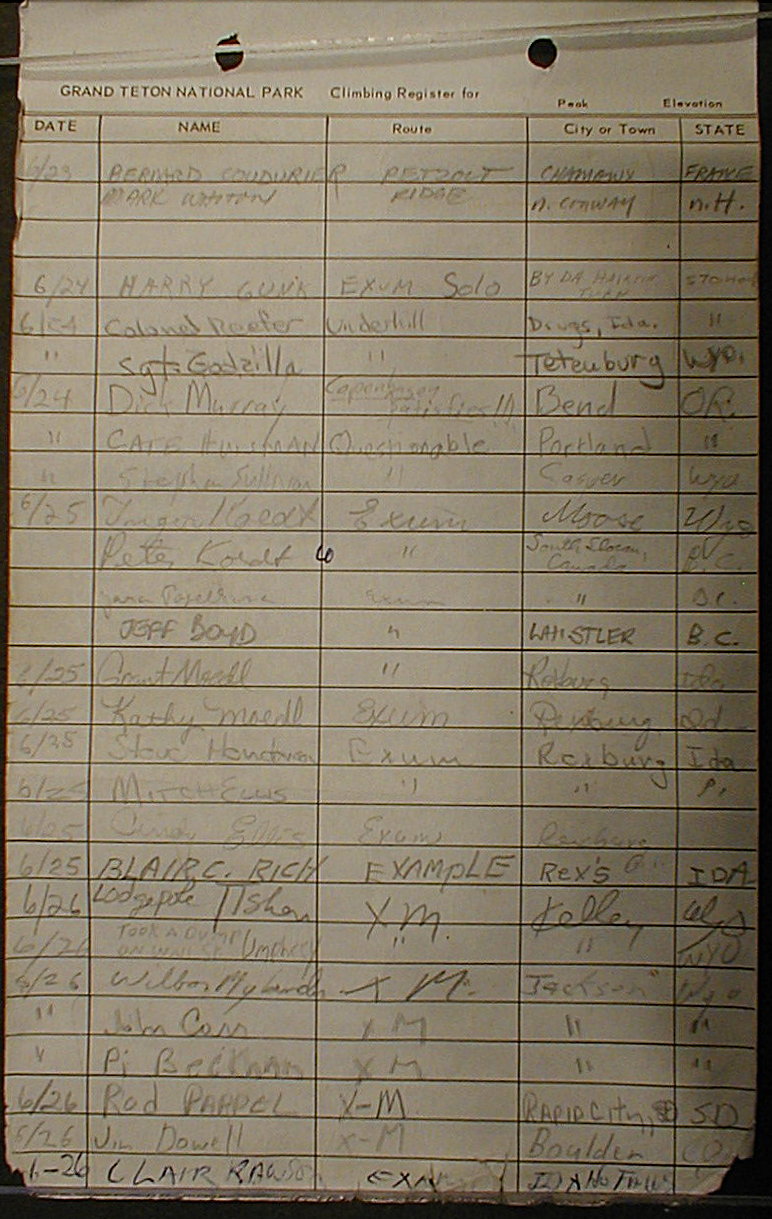 GRAND TETON NATIONAL PARK Climbing Register for
Peak Elevation
DATE NAME Route City or Town STATE
6/23 BERNARD COUDURIER PETZOLT CHAMONIX FRANCE
MARK WHITON RIDGE N. CONWAY N.H.
6/24 HARRY GUNK EXUM Solo BY DA
6/24 Colonel Reefer Underhill Driggs, Ida. "
" Sgt. Godzilla " Tetonburg WYO.
6/24 Dick Murray Copenhagen Satisfies!! Bend OR.
" CATE HUISMAN Questionable Portland "
" Stephen Sullivan " Casper Wyo
6/25 Exum Moose Wyo
Peter " South Slocan, Canada B.C.
Exum " B.C.
JEFF BOYD " WHISTLER B.C.
6/25 Grant " Rexburg Ida
6/25 Kathy Exum Rexburg Id.
6/25 Steve Exum Rexburg Ida
6/25 MITCH ELLIS " "
6/25 Cindy Ellis Exum Rexburg
6/25 BLAIR C. RICH EXAMPLE REX'S IDA
6/26 Lodgepole XM. Kelley Wyo
6/26 TOOK A DUMP ON Umphrey " " WYO
6/26 Wilbur X M. Jackson Wyo
" John Carr X M " "
" Pi Beckham X M " "
6/26 Rod X-M RAPID CITY, SD
6/26 Jim Dowell X-M Boulder CO
6-26 CLAIR RAWSON IDAHO FALLS